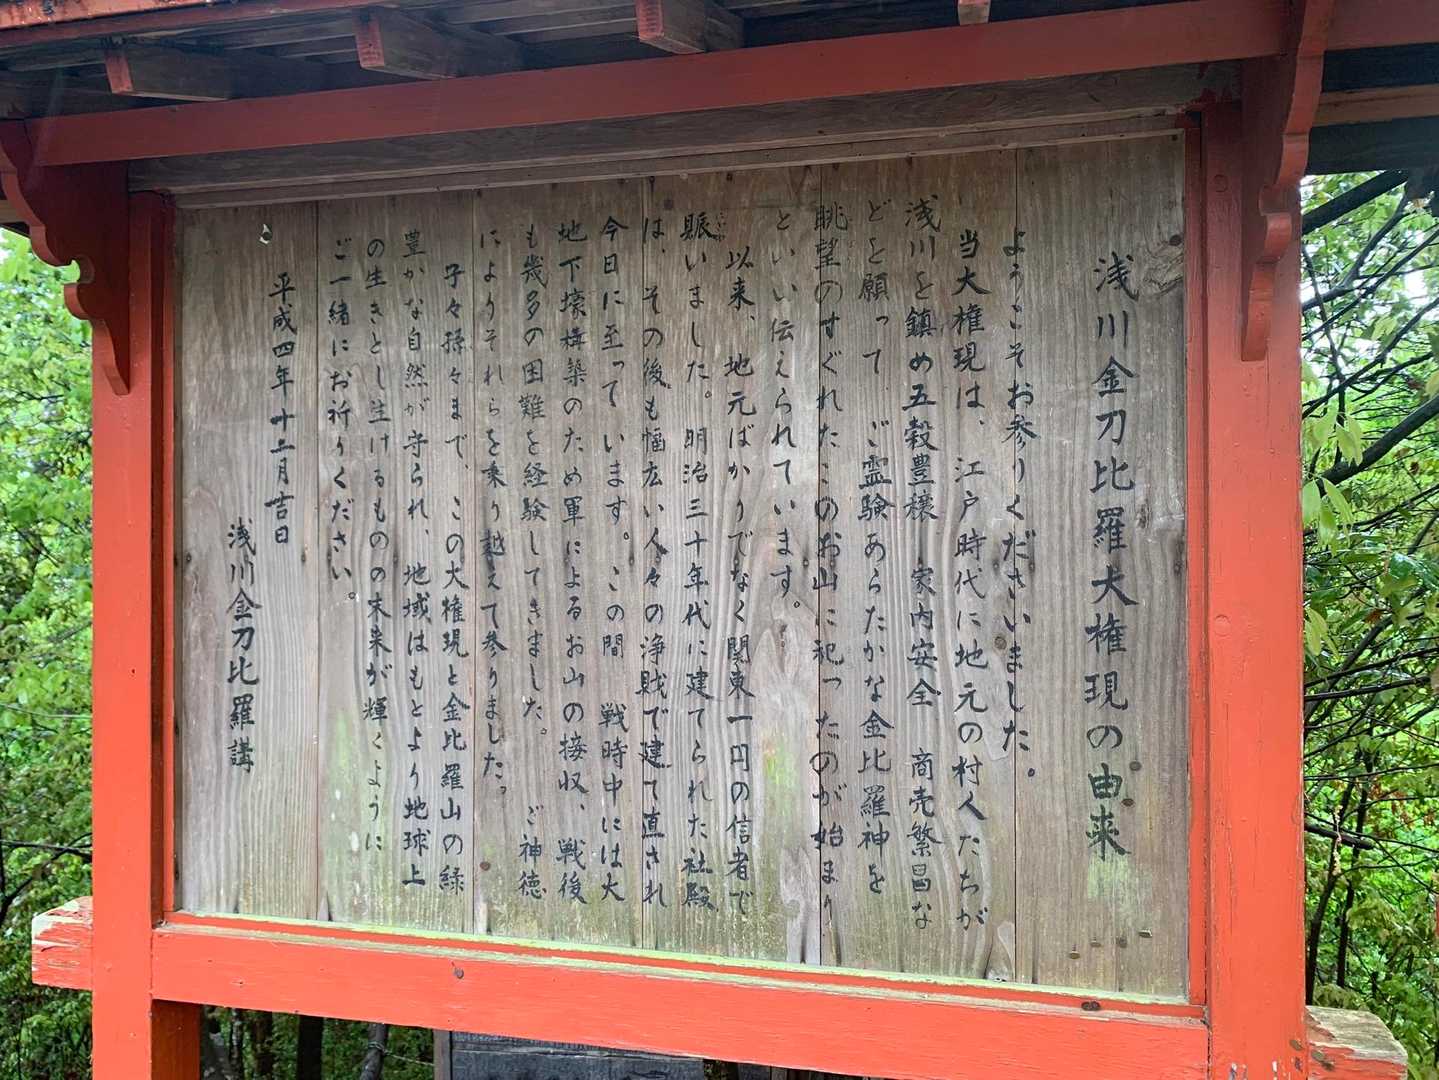 浅川金刀比羅大権現の由来
ようこそお参りくださいました。
当大権現は、江戸時代に地元の村人たちが
浅川を鎮め五穀豊穣 家内安全 商売繁昌な
どを願って ご霊験あらたかな金比羅神を
眺望のすぐれたこのお山に祀ったのが始まり
といい伝えられています。
以来、地元ばかりでなく関東一円の信者で
賑いました。明治三十年代に建てられた社殿
は、その後も幅広い人々の浄財で建て直され
今日に至っています。この間 戦時中には大
地下壕構築のため軍によるお山の接収、戦後
も幾多の困難を経験してきました。 ご神徳
によりそれらを乗り越えて参りました。
子々孫々まで、この大権現と金比羅山の緑
豊かな自然が守られ、地域はもとより地球上
の生きとし生けるものの未来が輝くように
ご一緒にお祈りください。
平成四年十二月吉日
浅川金刀比羅講